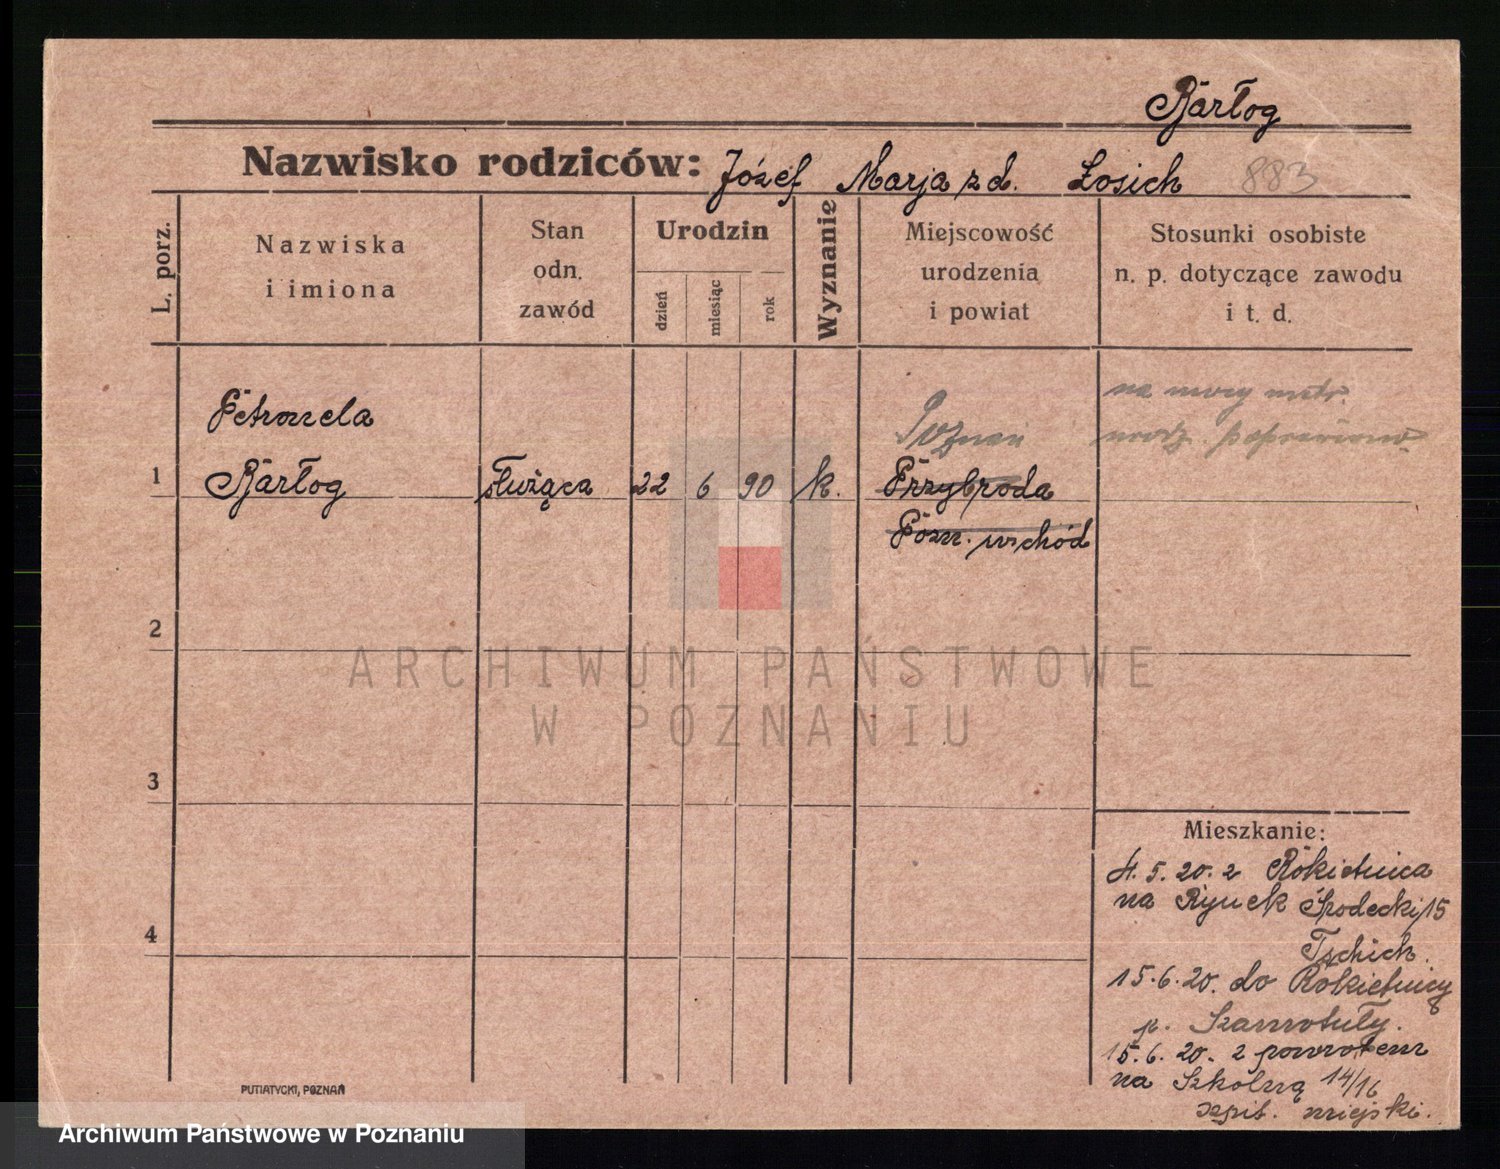 Bartog
Nazwisko rodziców: Józef Marja z d. Łosich 883
L. porz.
Nazwiska
i imiona
Stan
odn.
zawód
Urodzin
dzień
miesiąc
rok
Wyznanie
Miejscowość
urodzenia
i powiat
Stosunki osobiste
n. p. dotyczące zawodu
i t. d.
Petronela
Poznań
na mocy metr.
urodz. poprawiono
1 Bartłog służąca 22 6 90 k. Przybroda
Pozn. wschód
2
ARCHIWUM PAŃSTWOWE
W POZNANIU
3
Mieszkanie:
4. 5. 20. z Rokietnica
na Rynek Środecki 15
4
Tschich.
15. 6. 20. do Rokietnicy
p. Szamotuły.
15. 6. 20. z powrotem
na Szkolną 14/16
szpit. miejski.
PUTIATYCKI, POZNAŃ
Archiwum Państwowe w Poznaniu